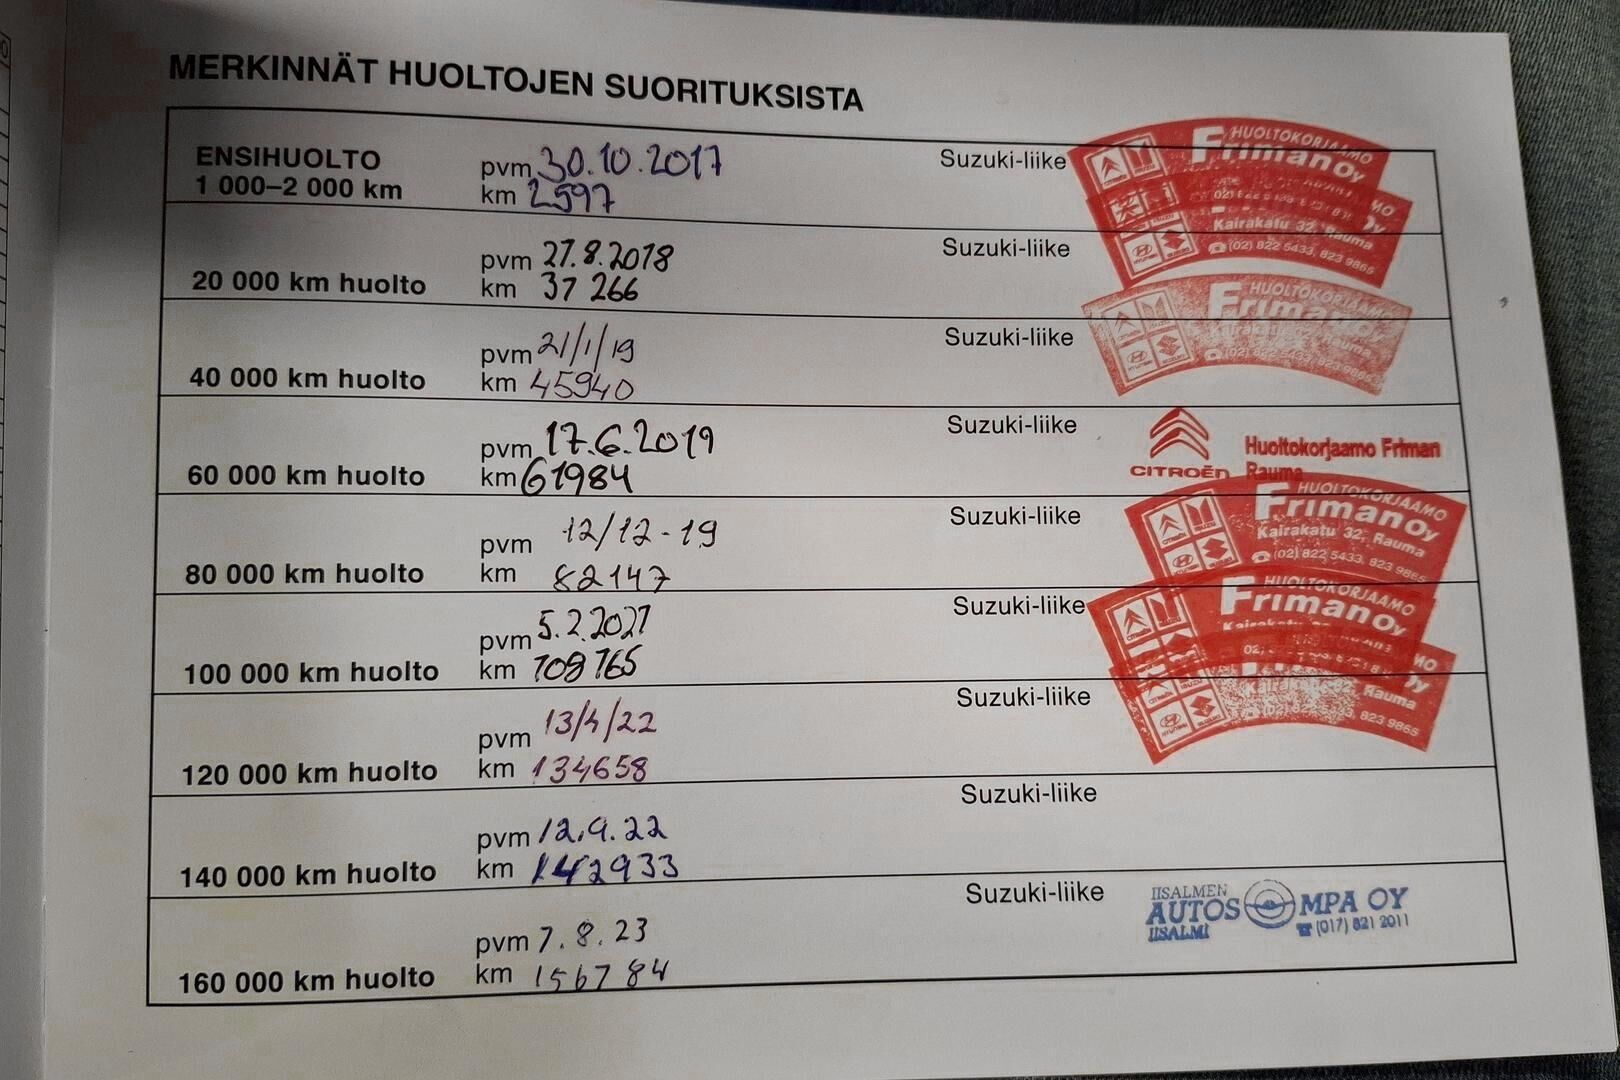 MERKINNÄT HUOLTOJEN SUORITUKSISTA
ENSIHUOLTO
1 000–2 000 km
pvm 30.10.2017
km 2597
Suzuki-liike
HUOLTOKORJAAMO
Friman Oy
Kairakatu 32, Rauma
(02) 822 5433, 823 9865
20 000 km huolto
pvm 27.8.2018
km 37 266
Suzuki-liike
HUOLTOKORJAAMO
Friman Oy
Kairakatu 32, Rauma
(02) 822 5433, 823 9865
40 000 km huolto
pvm 21/1/19
km 45940
Suzuki-liike
60 000 km huolto
pvm 17.6.2019
km 61984
Suzuki-liike
CITROËN
Huoltokorjaamo Friman
Rauma
80 000 km huolto
pvm 12/12-19
km 82147
Suzuki-liike
HUOLTOKORJAAMO
Friman Oy
Kairakatu 32, Rauma
(02) 822 5433, 823 9865
100 000 km huolto
pvm 5.2.2021
km 109765
Suzuki-liike
HUOLTOKORJAAMO
Friman Oy
120 000 km huolto
pvm 13/4/22
km 134658
Suzuki-liike
Rauma
823 9865
140 000 km huolto
pvm 12.9.22
km 142933
Suzuki-liike
160 000 km huolto
pvm 7.8.23
km 156784
Suzuki-liike
IISALMEN
AUTOSOMPA OY
IISALMI
(017) 821 2011